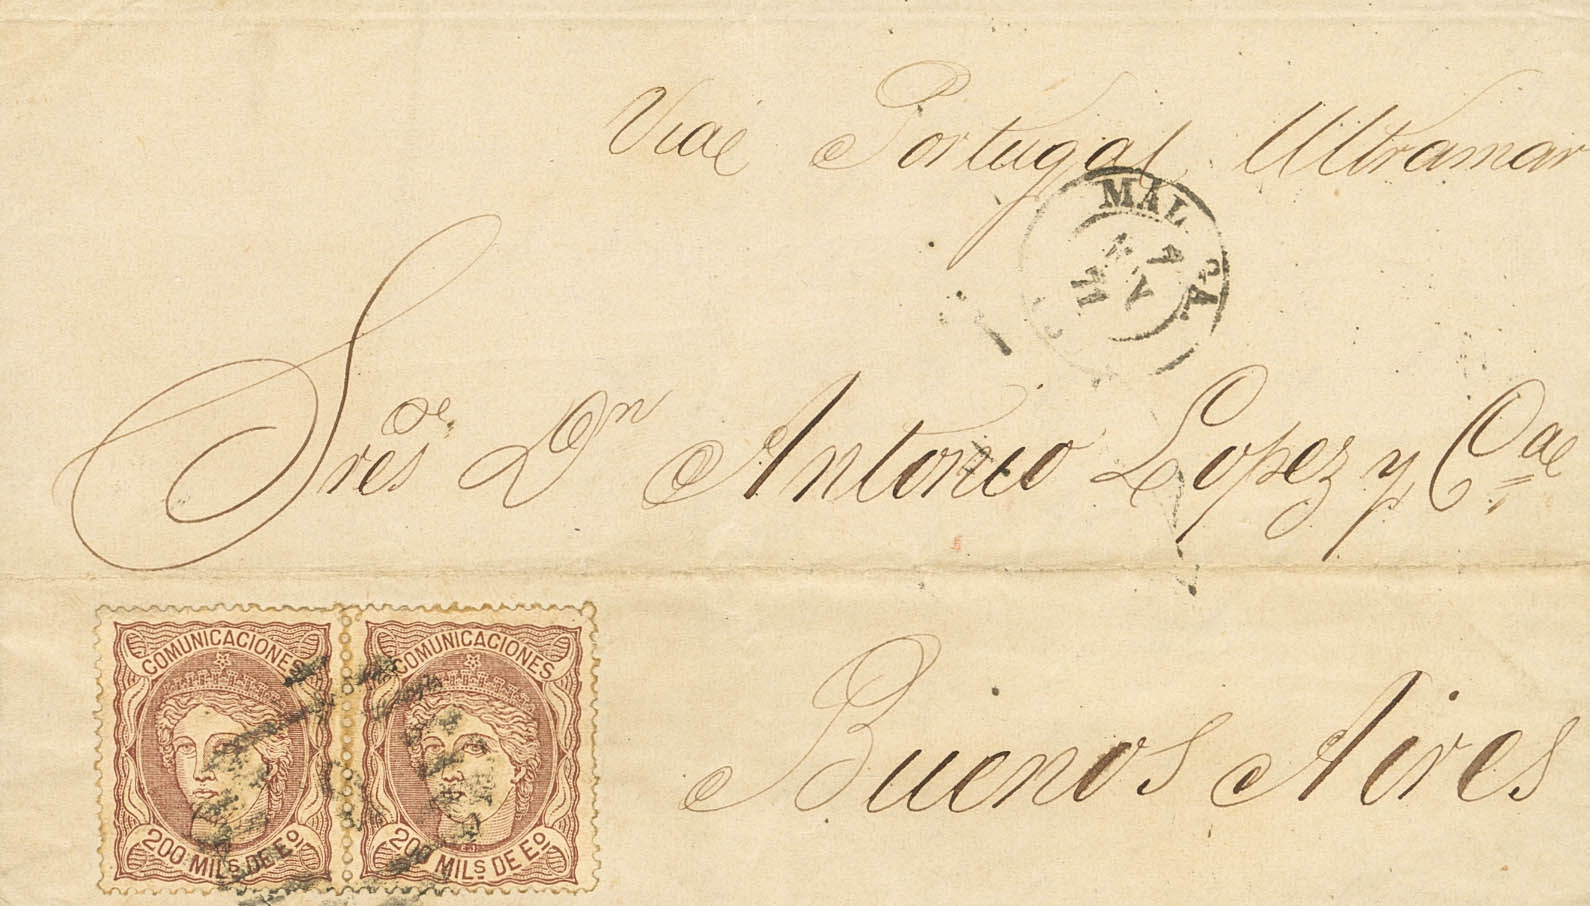 Via Portugal Ultramar
MAL GA.
71
Sres. Dn Antonio Lopez y Ca
Buenos Aires
COMUNICACIONES COMUNICACIONES
200 MILS. DE Eo. 200 MILS. DE Eo.